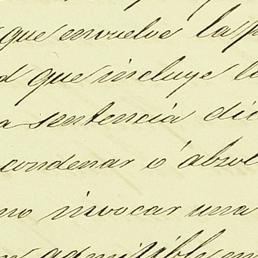 que envuelve la p
d que incluye l
a sentencia dic
condenar o' absol
no invocar una
admisible en